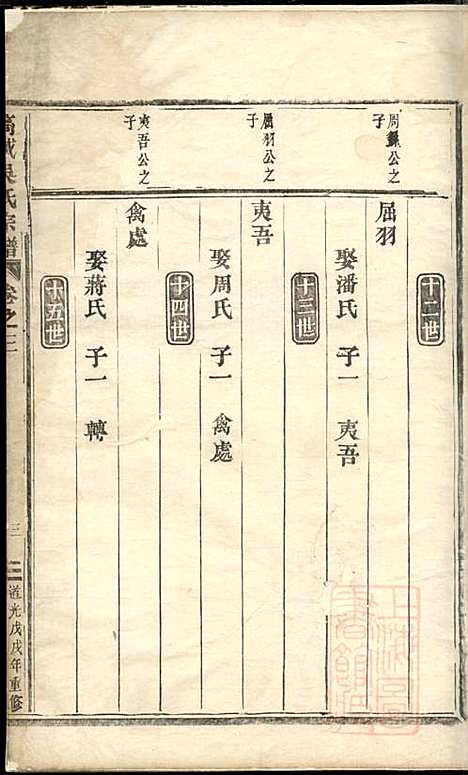 十二世
周繇公之
子
屈羽
娶潘氏 子一 夷吾
十三世
屈羽公之
子
夷吾
娶周氏 子一 禽處
十四世
夷吾公之
子
禽處
娶蔣氏 子一 轉
十五世
吳氏宗譜 卷之二
三
道光戊戌年重修
上海圖
書館藏